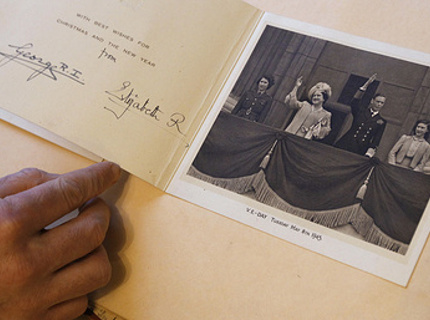 WITH BEST WISHES FOR
CHRISTMAS AND THE NEW YEAR
from
George R.I.
Elizabeth R
V.E-DAY Tuesday May 8th 1945